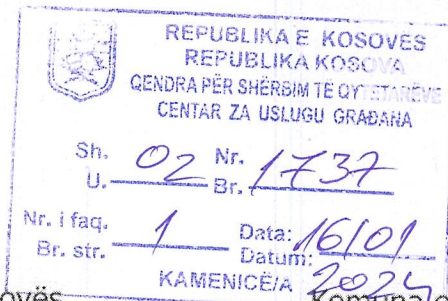 REPUBLIKA E KOSOVËS
REPUBLIKA KOSOVA
QENDRA PËR SHËRBIM TË QYTETARËVE
CENTAR ZA USLUGU GRAĐANA
Sh. 02 Nr. 1737
U. Br.
Nr. i faq. 1 Data: 16/01
Br. str. Datum: 2024
KAMENICË/A
ovës Komuna e